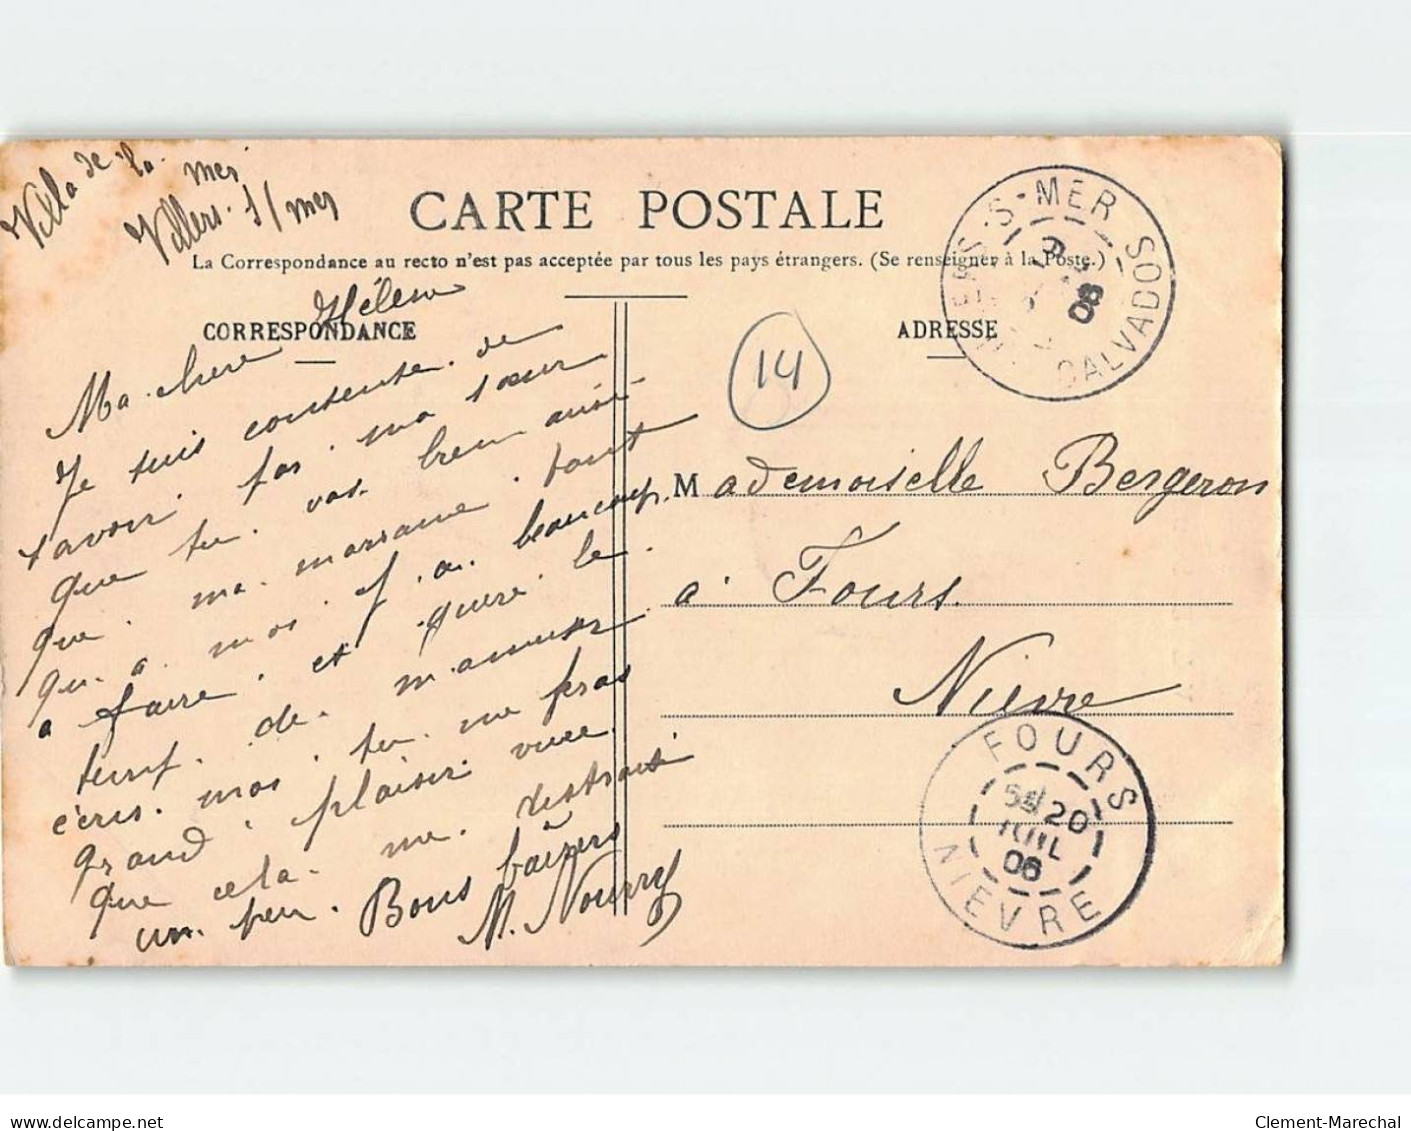 Villa de la mer
Villers s/mer
CARTE POSTALE
La Correspondance au recto n'est pas acceptée par tous les pays étrangers. (Se renseigner à la Poste.)
CORRESPONDANCE
ADRESSE
Ma chère Hélène
Je suis contente de
savoir par ma sœur
que tu vas bien ainsi
que ma marraine tout
qu a moi j ai beaucoup
a faire et guère le
temp de m amuser
écris moi tu me feras
grand plaisir
que cela me distrait
un peu. Bons baisers
M. Nourry
14
Mademoiselle Bergeron
a Fours.
Nièvre
S-MER
CALVADOS
06
FOURS
20
JUIL
06
NIEVRE
Clement-Marechal